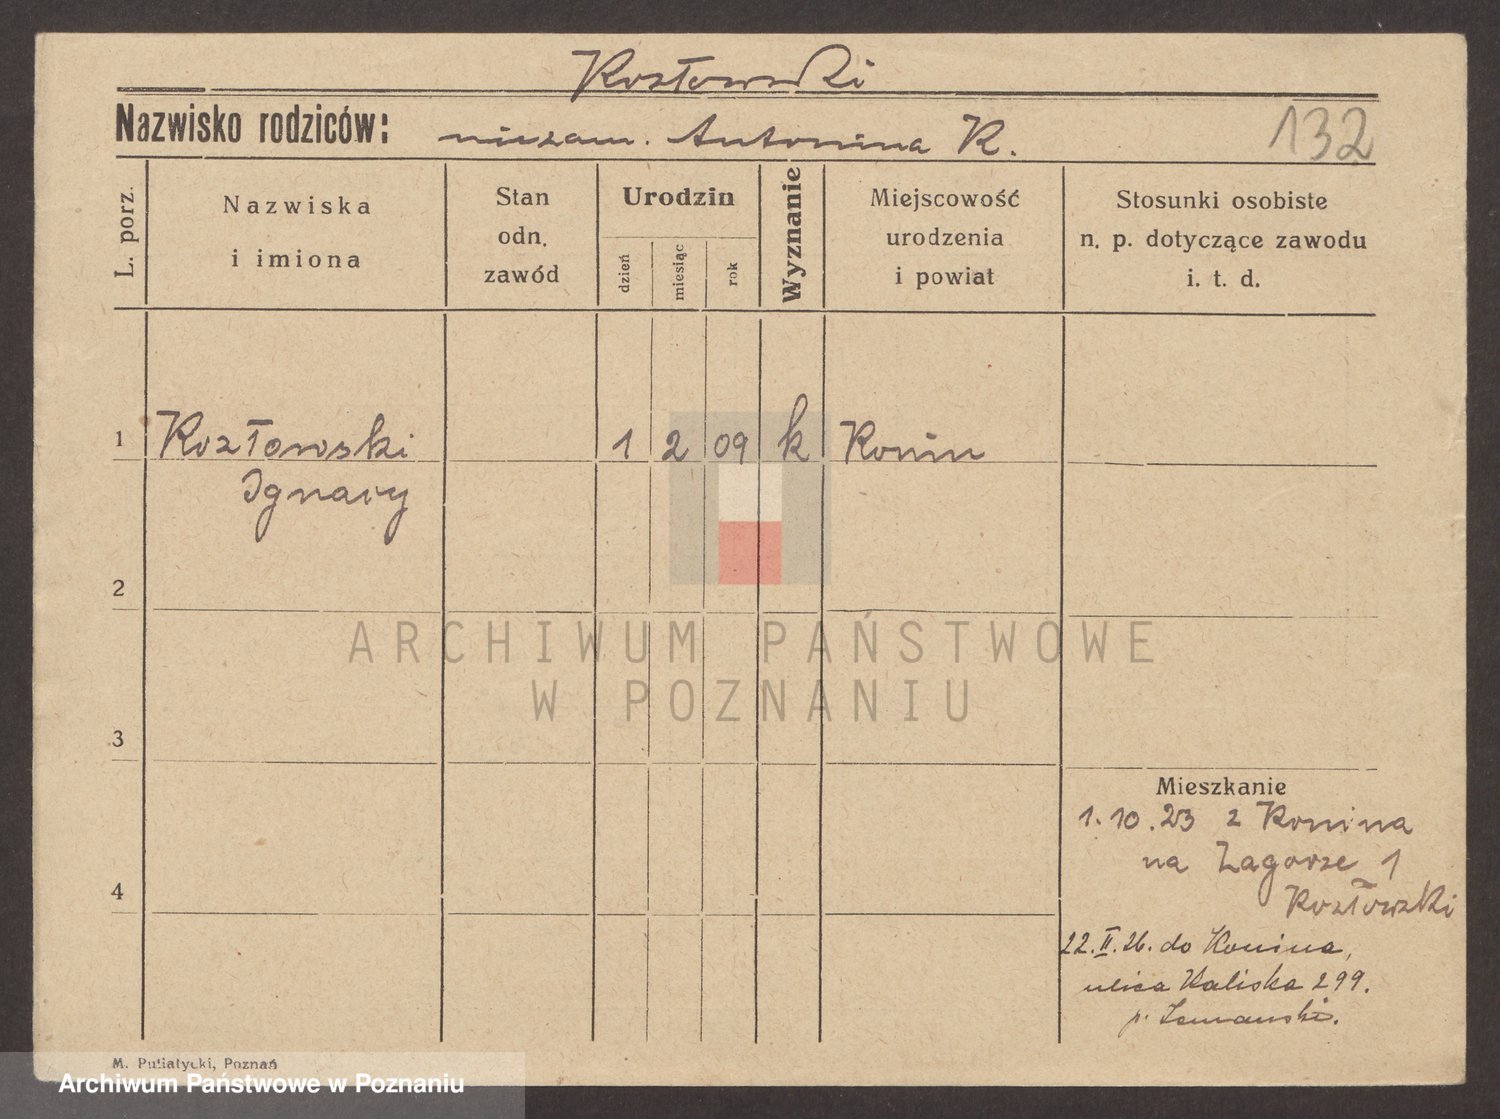 Kozłowski
Nazwisko rodziców: niezam. Antonina K.
132
L. porz.
Nazwiska
i imiona
Stan
odn.
zawód
Urodzin
dzień
miesiąc
rok
Wyznanie
Miejscowość
urodzenia
i powiat
Stosunki osobiste
n. p. dotyczące zawodu
i. t. d.
1 Kozłowski 1 2 09 k Konin
Ignacy
2
ARCHIWUM PAŃSTWOWE
W POZNANIU
3
Mieszkanie
1.10.23 z Konina
na Zagorze 1
4
Kozłowski
22.II.26. do Konina,
ulica Kaliska 299.
p.
M. Putiatycki, Poznań
Archiwum Państwowe w Poznaniu